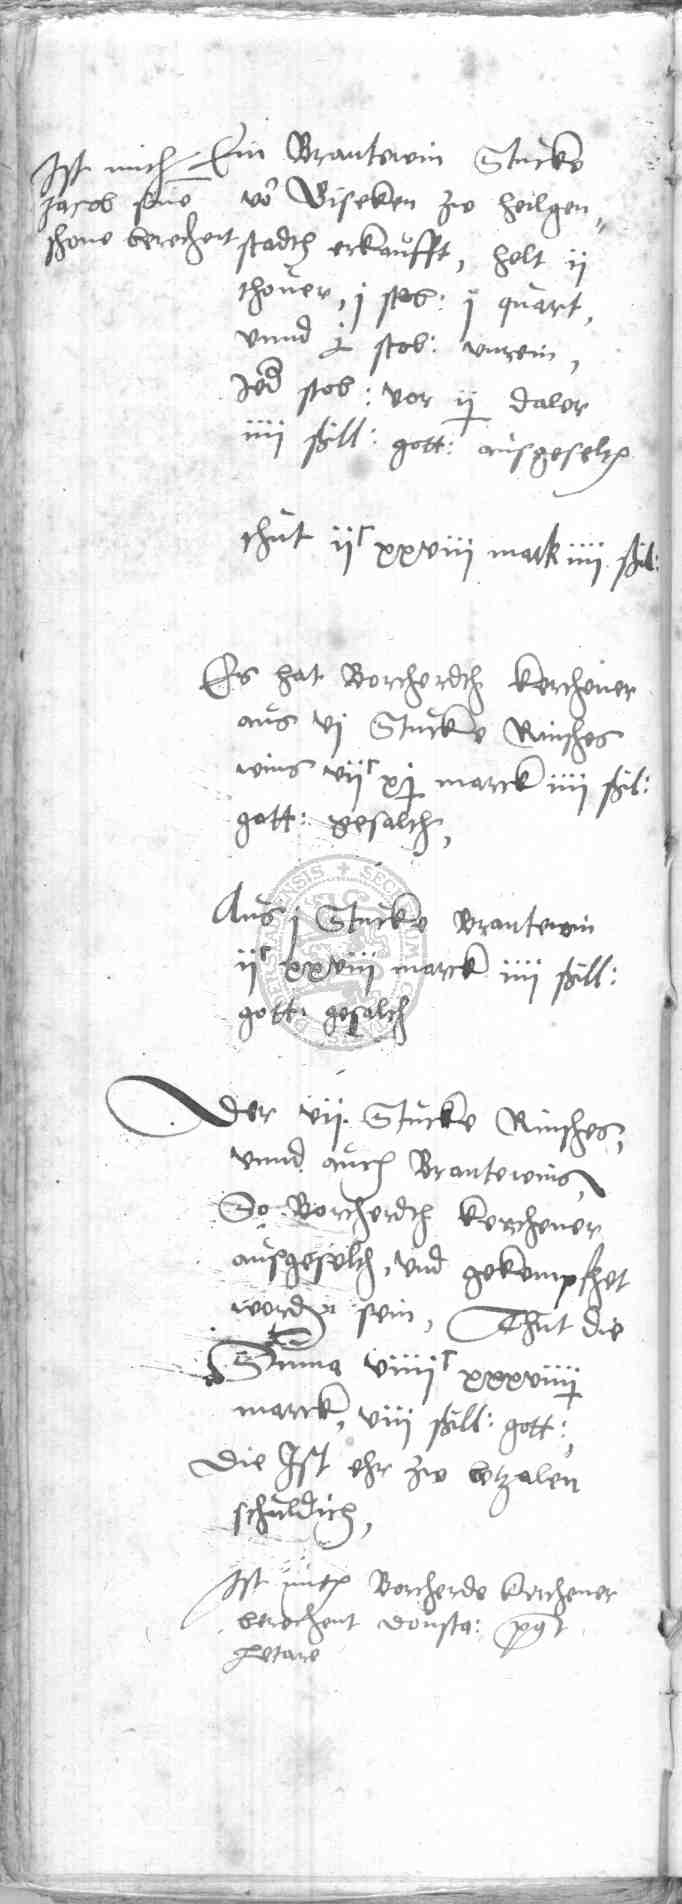 Ist mith
Jacob sine
shone berechent
Ein Brantewin Stucke
vor Diseken zw heilgen„
stadth erkaufft, helt ij
thoner, j stob: j quart,
vnnd j stob: vnrein,
Jed stob: vor ij daler
iiij ßill: gott: ausgeselth
thut ijc xxviij mark iiij ßil:
Es hat Borcherdth kerchener
aus vj Stucke Rinshes
wins vijc xj marck iiij ßil:
gott: gesalth,
Aus j Stucke Brantewin
ijc xxviij marck iiij ßill:
gott: gesalth
Der vij Stucke Rinshes,
vnnd auch Brantewins,
So Borcherdth kerchener
ausgeselth, vnd gekempfhet
worden sein, Thut die
Suma viiijc xxxviiij
marck, viij ßill: gott:,
Die Ist ehr zw betzalen
schuldich,
Ist mith Borcherde kerchener
berechent donsta: post
Letare